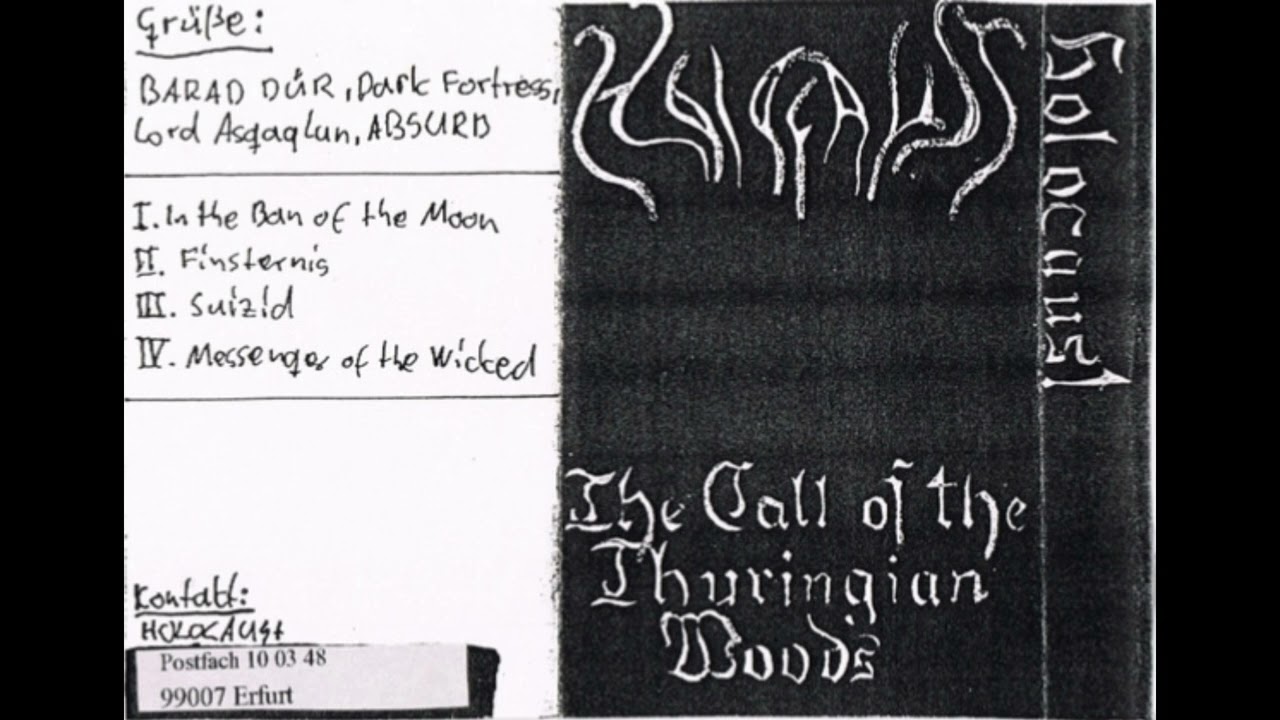 Grüße:
BARAD DÛR, Dark Fortress,
Lord Asgaqlun, ABSURD
I. In the Ban of the Moon
II. Finsternis
III. Suizid
IV. Messenger of the Wicked
Kontakt:
HOLOCAUST
Postfach 10 03 48
99007 Erfurt
HOLOCAUST
The Call of the
Thuringian
Woods
Holocaust